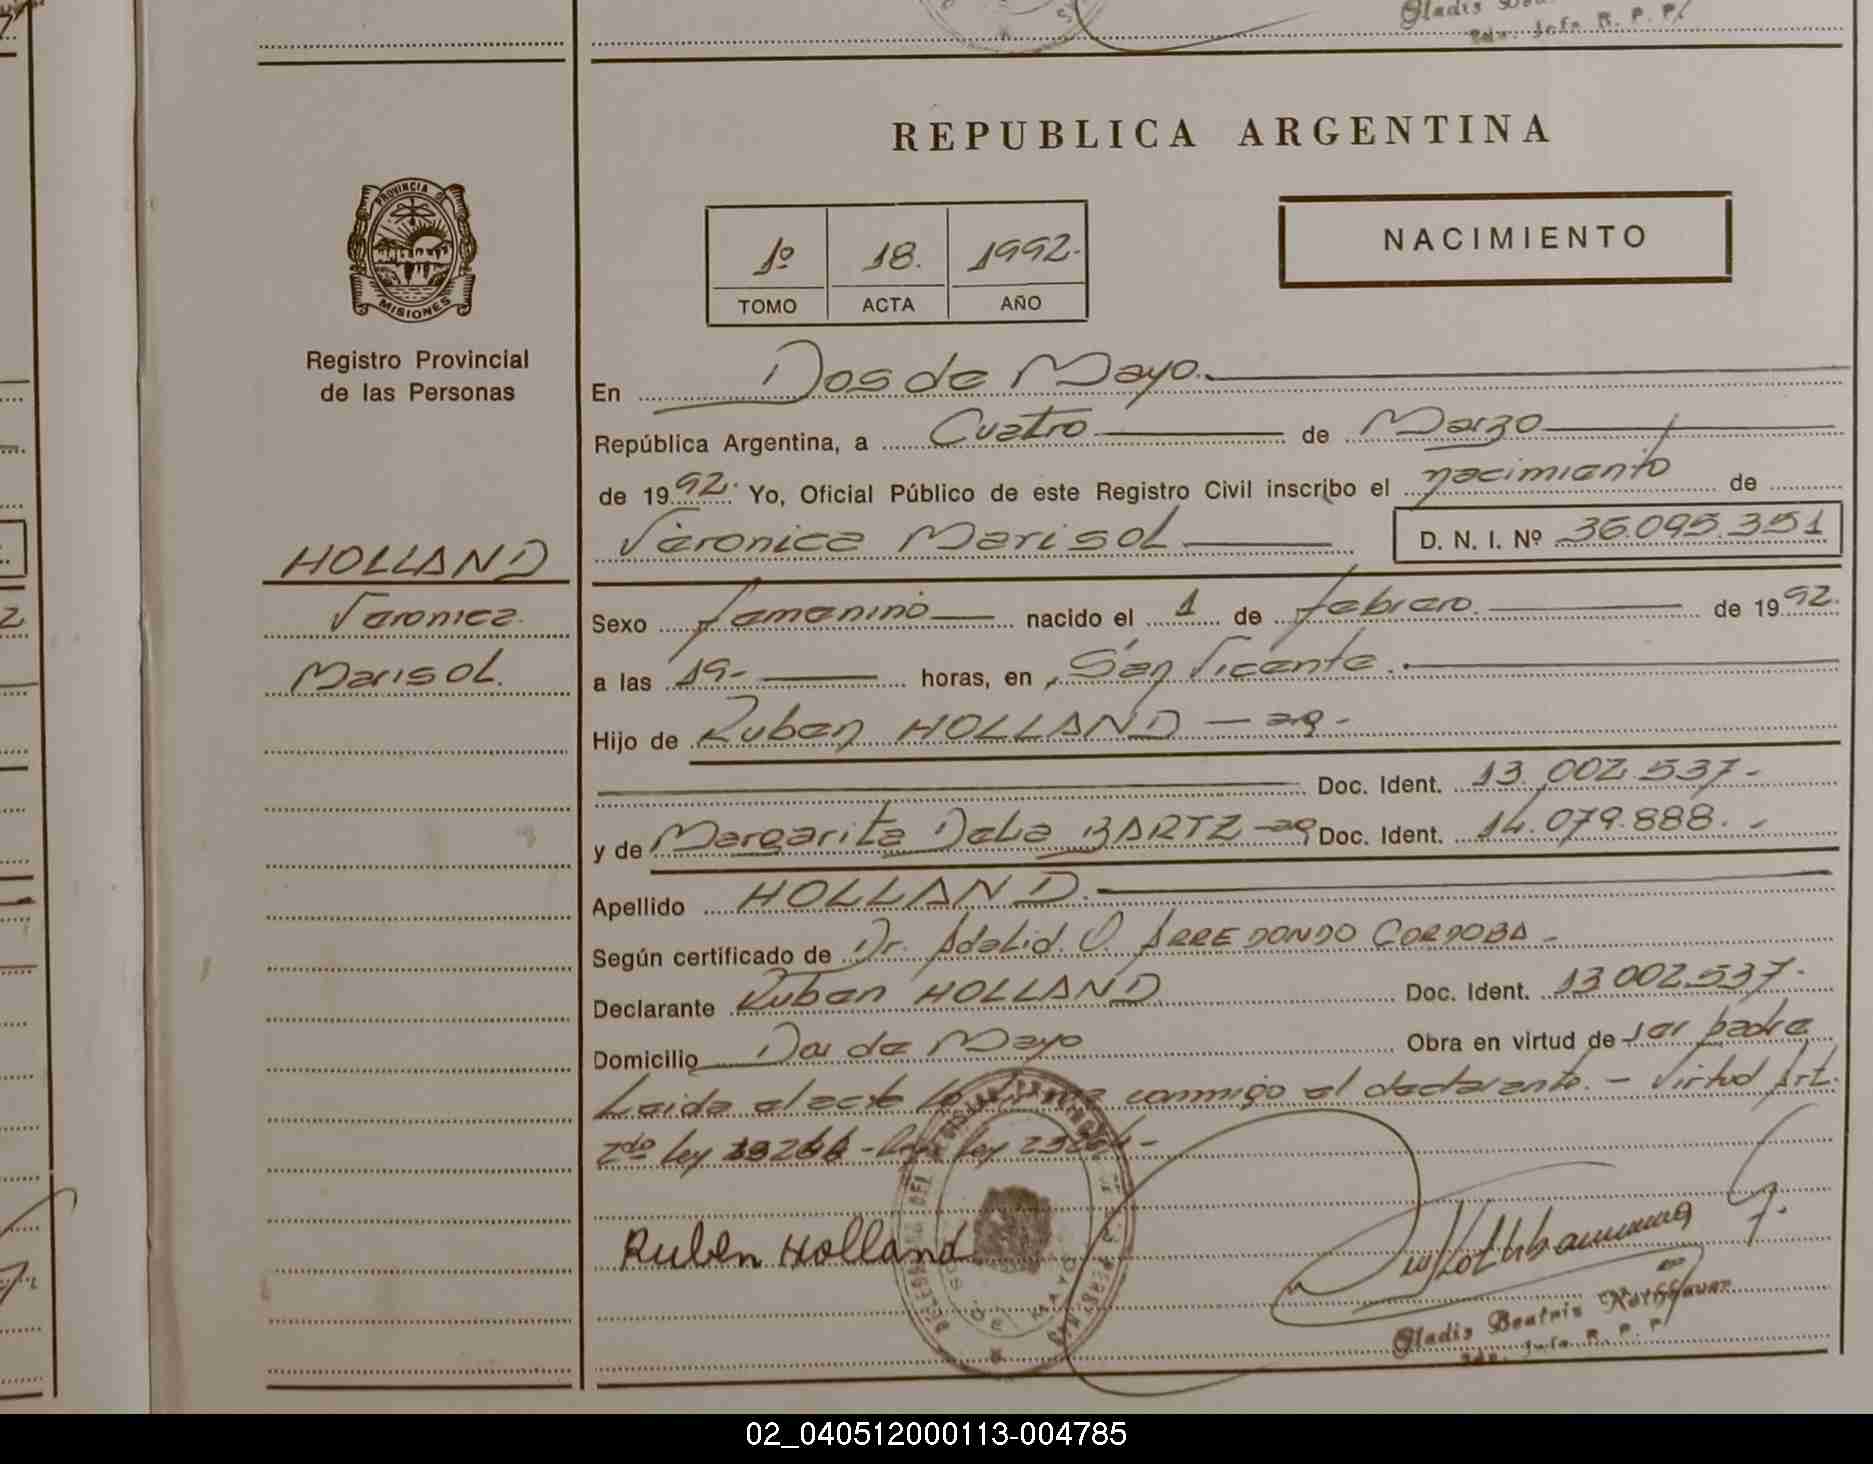 Gladis
2da. Jefe R. P. P.
REPUBLICA ARGENTINA
PROVINCIA DE
MISIONES
Registro Provincial
de las Personas
1º 18. 1992.
TOMO ACTA AÑO
NACIMIENTO
En Dos de Mayo.
República Argentina, a Cuatro de Marzo
de 1992. Yo, Oficial Público de este Registro Civil inscribo el nacimiento de
Veronica Marisol D. N. I. Nº 36.095.351
HOLLAND
Veronica
Marisol.
Sexo femenino nacido el 1 de febrero. de 1992.
a las 19- horas, en San Vicente.
Hijo de Ruben HOLLAND - arg -
Doc. Ident. 13.002.537-
y de Margarita Delia BARTZ - arg Doc. Ident. 14.079.888. -
Apellido HOLLAND.
Según certificado de Dr. Adalid. O. ARREDONDO CORDOBA -
Declarante Ruben HOLLAND Doc. Ident. 13.002.537.
Domicilio Dos de Mayo Obra en virtud de ser padre
Leida el acta la firma conmigo el declarante. - Virtud Art.
2do ley
Ruben Holland
DOS DE MAYO
Gladis Beatris Kothbauer
2da. Jefe R. P. P.
02_040512000113-004785